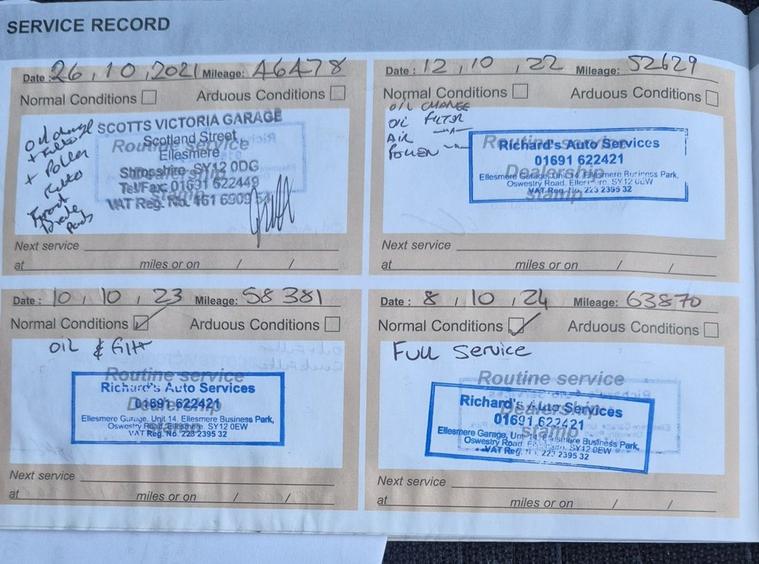 SERVICE RECORD
Date: 26, 10, 2021 Mileage: 46478
Normal Conditions Arduous Conditions
oil change
+ Pollen
Front
pads
SCOTTS VICTORIA GARAGE
Scotland Street
Routine service
Ellesmere
Dealership
Shropshire SY12 0DG
Tel/Fax: 01691 622449
stamp
VAT Reg. No. 461 6909
Next service
at miles or on / /
Date: 12, 10, 22 Mileage: 52629
Normal Conditions Arduous Conditions
OIL CHANGE
OIL FILTER
AIR —"—
POLLEN —"—
Routine service
Richard's Auto Services
01691 622421
Dealership
Ellesmere Garage, Unit 14, Ellesmere Business Park,
Oswestry Road, Ellesmere. SY12 0EW
VAT Reg. No. 223 2395 32
stamp
Next service
at miles or on / /
Date: 10, 10, 23 Mileage: 58381
Normal Conditions Arduous Conditions
OIL & Filt
Routine service
Richard's Auto Services
01691 622421
Dealership
Ellesmere Garage, Unit 14, Ellesmere Business Park,
Oswestry Road, Ellesmere. SY12 0EW
stamp
VAT Reg. No. 223 2395 32
Next service
at miles or on / /
Date: 8, 10, 24 Mileage: 63870
Normal Conditions Arduous Conditions
FULL Service
Routine service
Richard's Auto Services
Dealership
01691 622421
stamp
Ellesmere Garage, Unit 14, Ellesmere Business Park,
Oswestry Road, Ellesmere. SY12 0EW
VAT Reg. No. 223 2395 32
Next service
at miles or on / /